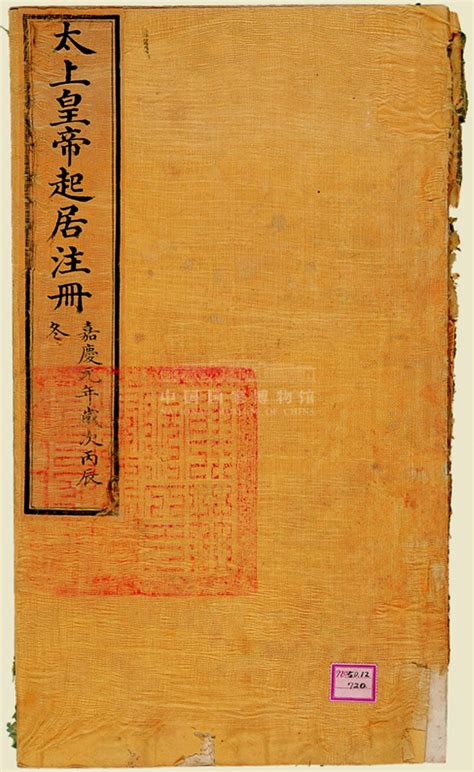 太上皇帝起居注冊
嘉慶元年歲次丙辰
冬
中国国家博物馆
NATIONAL MUSEUM OF CHINA
720